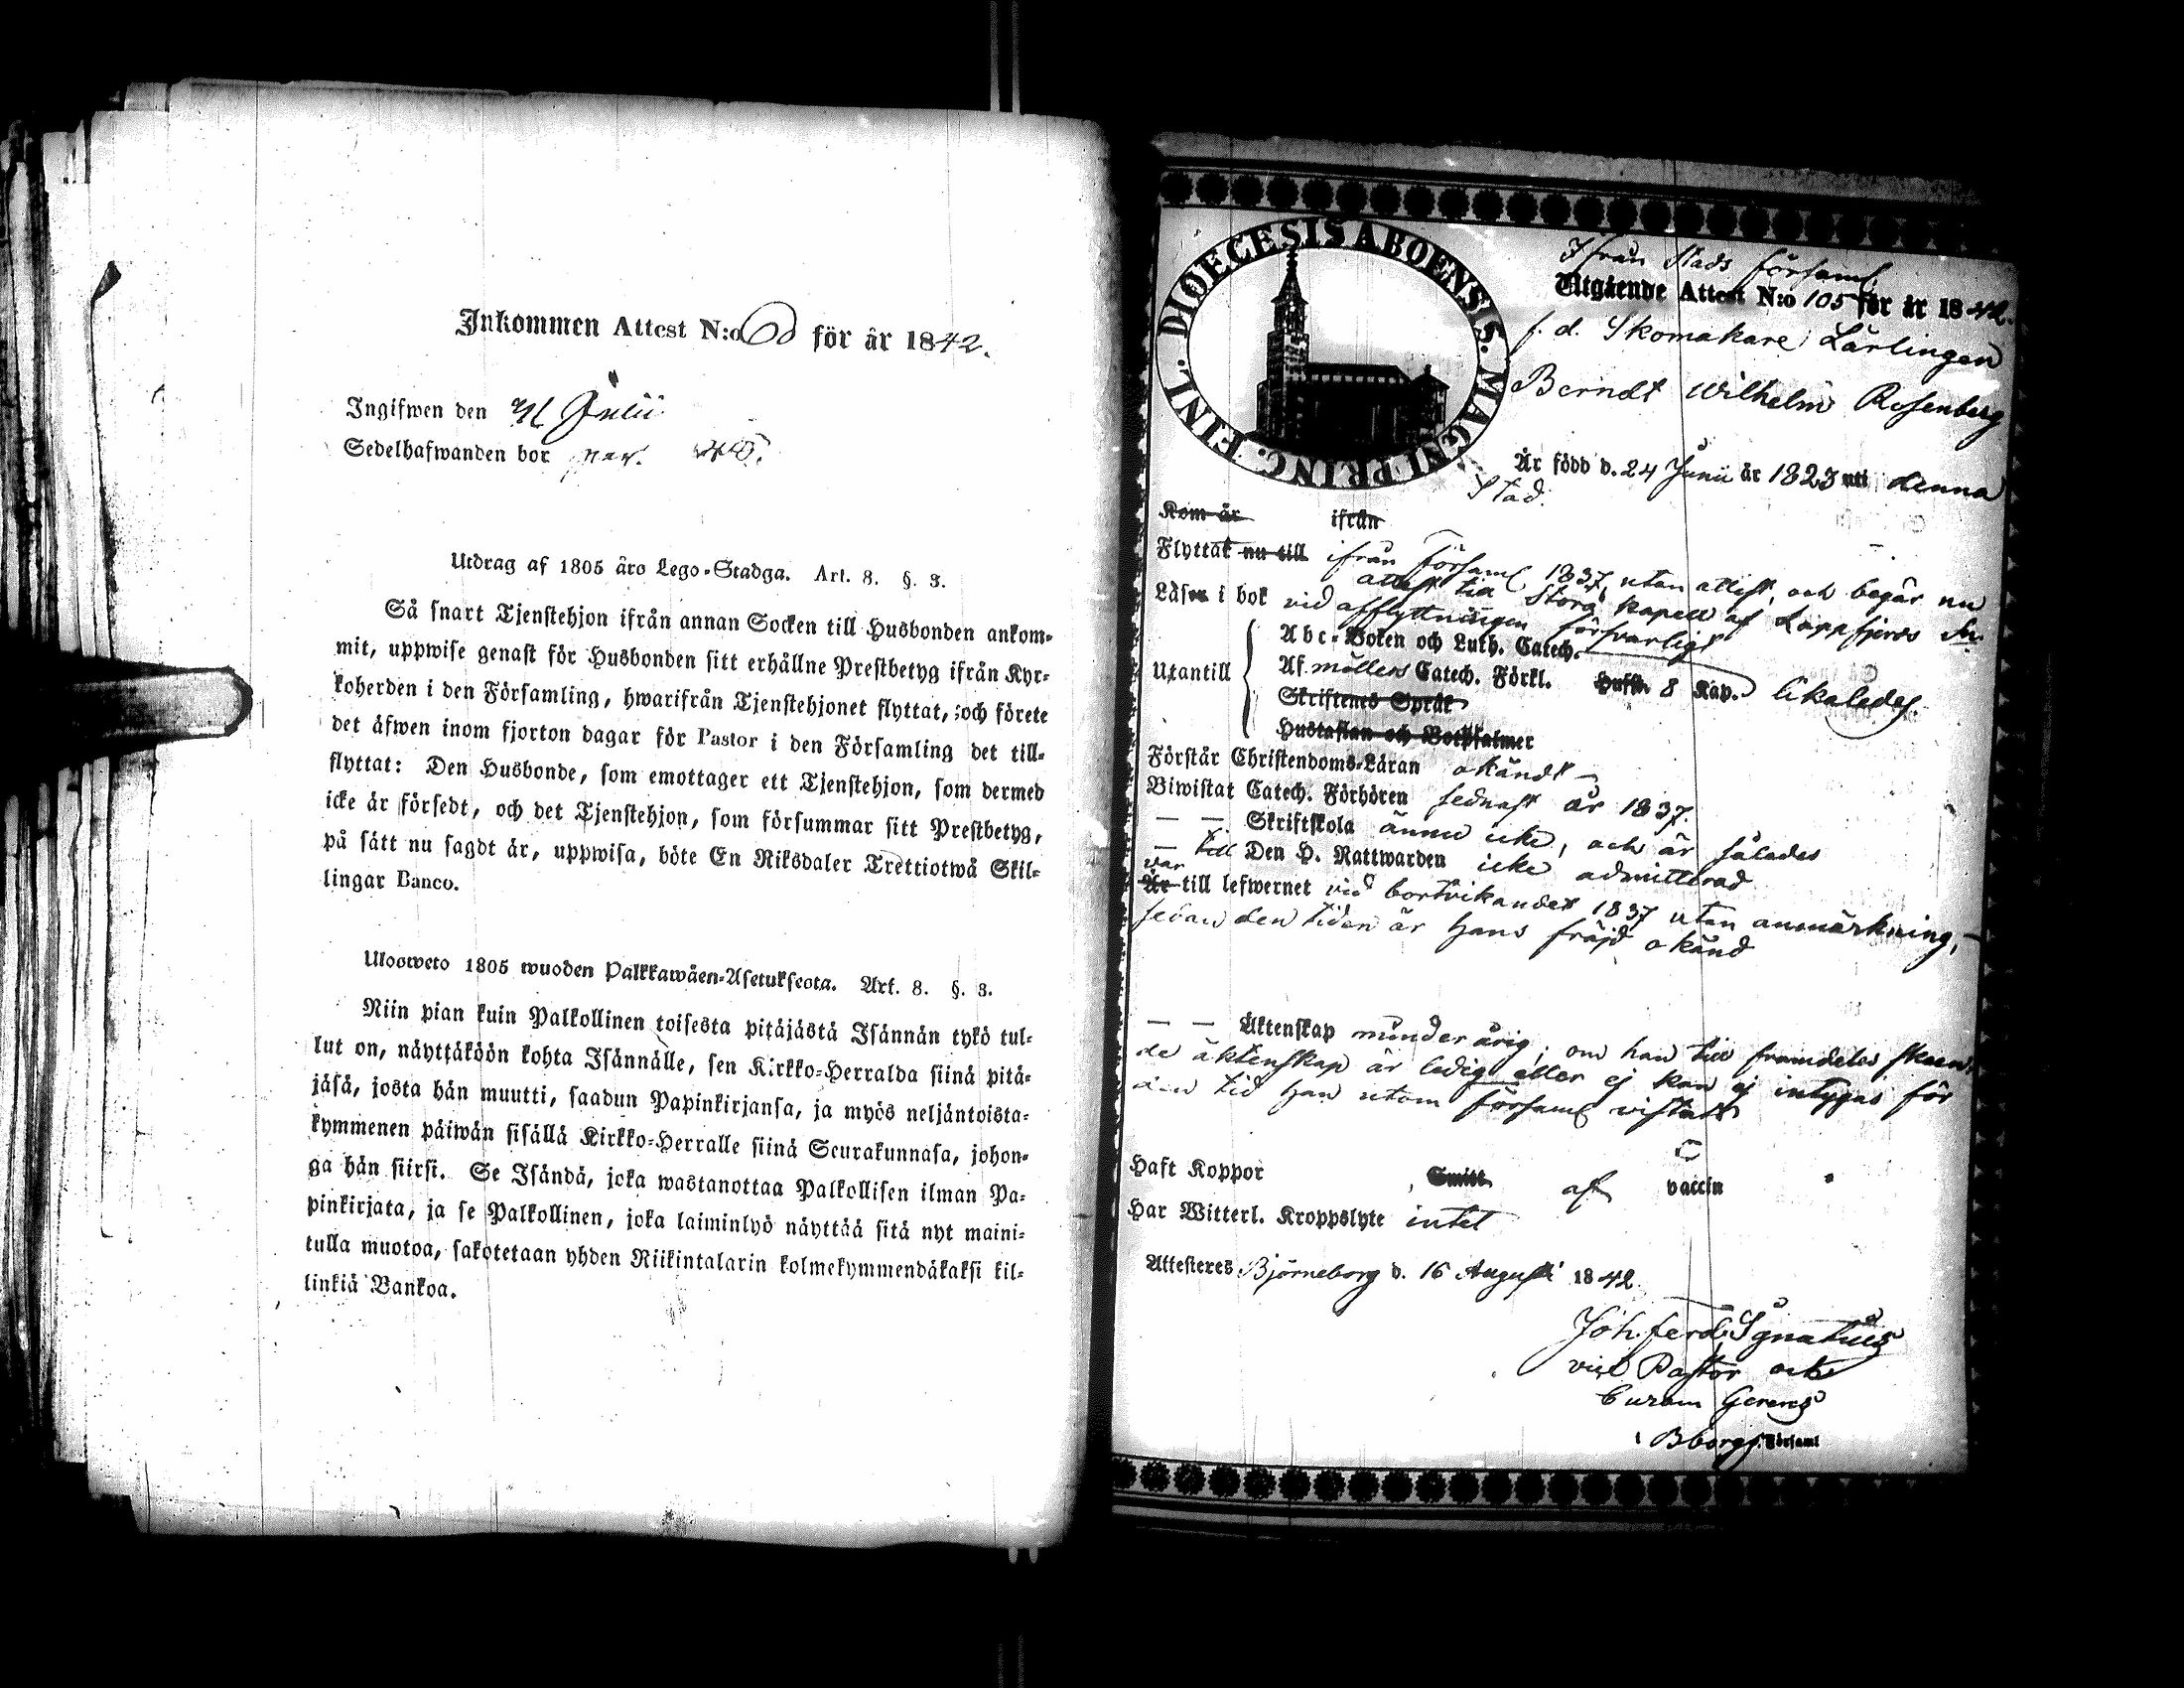 Inkommen Attest N:o för år 1842.
Ingifwen den Julii
Sedelhafwanden bor
Utdrag af 1805 års Lego-Stadga. Art. 8. §. 3.
Så snart Tjenstehjon ifrån annan Socken till Husbonden ankom-
mit, uppwise genast för Husbonden sitt erhållne Prestbetyg ifrån Kyr-
koherden i den Församling, hwarifrån Tjenstehjonet flyttat, och förete
det äfwen inom fjorton dagar för Pastor i den Församling det till-
flyttat: Den Husbonde, som emottager ett Tjenstehjon, som dermed
icke är försedt, och det Tjenstehjon, som försummar sitt Prestbetyg,
på sätt nu sagdt är, uppwisa, böte En Riksdaler Trettiotwå Skil-
lingar Banco.
Ulosweto 1805 wuoden Palkkawäen-Asetuksesta. Art. 8. §. 3.
Niin pian kuin Palkollinen toisesta pitäjästä Isännän tykö tul-
lut on, näyttäköön kohta Isännälle, sen Kirkko-Herralda siinä pitä-
jäsä, josta hän muutti, saadun Papinkirjansa, ja myös neljäntoista-
kymmenen päiwän sisällä Kirkko-Herralle siinä Seurakunnasa, johon-
ga hän siirsi. Se Isändä, joka wastanottaa Palkollisen ilman Pa-
pinkirjata, ja se Palkollinen, joka laiminlyö näyttää sitä nyt maini-
tulla muotoa, sakotetaan yhden Riikintalarin kolmekymmendäkaksi kil-
linkiä Bankoa.
DIOECESIS ABOENSIS. MAGNI PRINC. FINL.
Ifrån Stads församl
Utgående Attest N:o 105 för år 1842.
f. d. Skomakare Lärlingen
Berndt Wilhelm Rosenberg
Är född d. 24 Junii år 1823 uti denna
Stad.
Kom år ifrån
Flyttat nu till ifrån Församl 1837, utan attest, och begär nu
attest till Storå kapell af Lappfjerds Sn.
Läser i bok vid afflyttningen försvarligt
Abc-Boken och Luth. Catech.
Utantill Af möllers Catech. Förkl. Husta. 8 Kap. likaledes.
Skriftenes Språk
Hustaflan och Botpsalmer
Förstår Christendoms-Läran okändt
Biwistat Catech. Förhören sednast år 1837.
— — Skriftskola ännu icke, och är således
— till Den H. Nattwarden icke admitterad
var
Är till lefwernet vid bortvikandet 1837 utan anmärkning,
sedan den tiden är hans fräjd okänd
— — Äktenskap minderårig; om han till framdeles skeen-
de äktenskap är ledig eller ej kan ej intygas för
den tid han utom församl vistats
Haft Koppor Smitt af vaccin
Har Witterl. Kroppslyte intet
Attesteres Björneborg d. 16 Augusti 1842.
Joh. Ferd. Ignatius
vice Pastor och
Curam Gerens
i Bborgs Församl